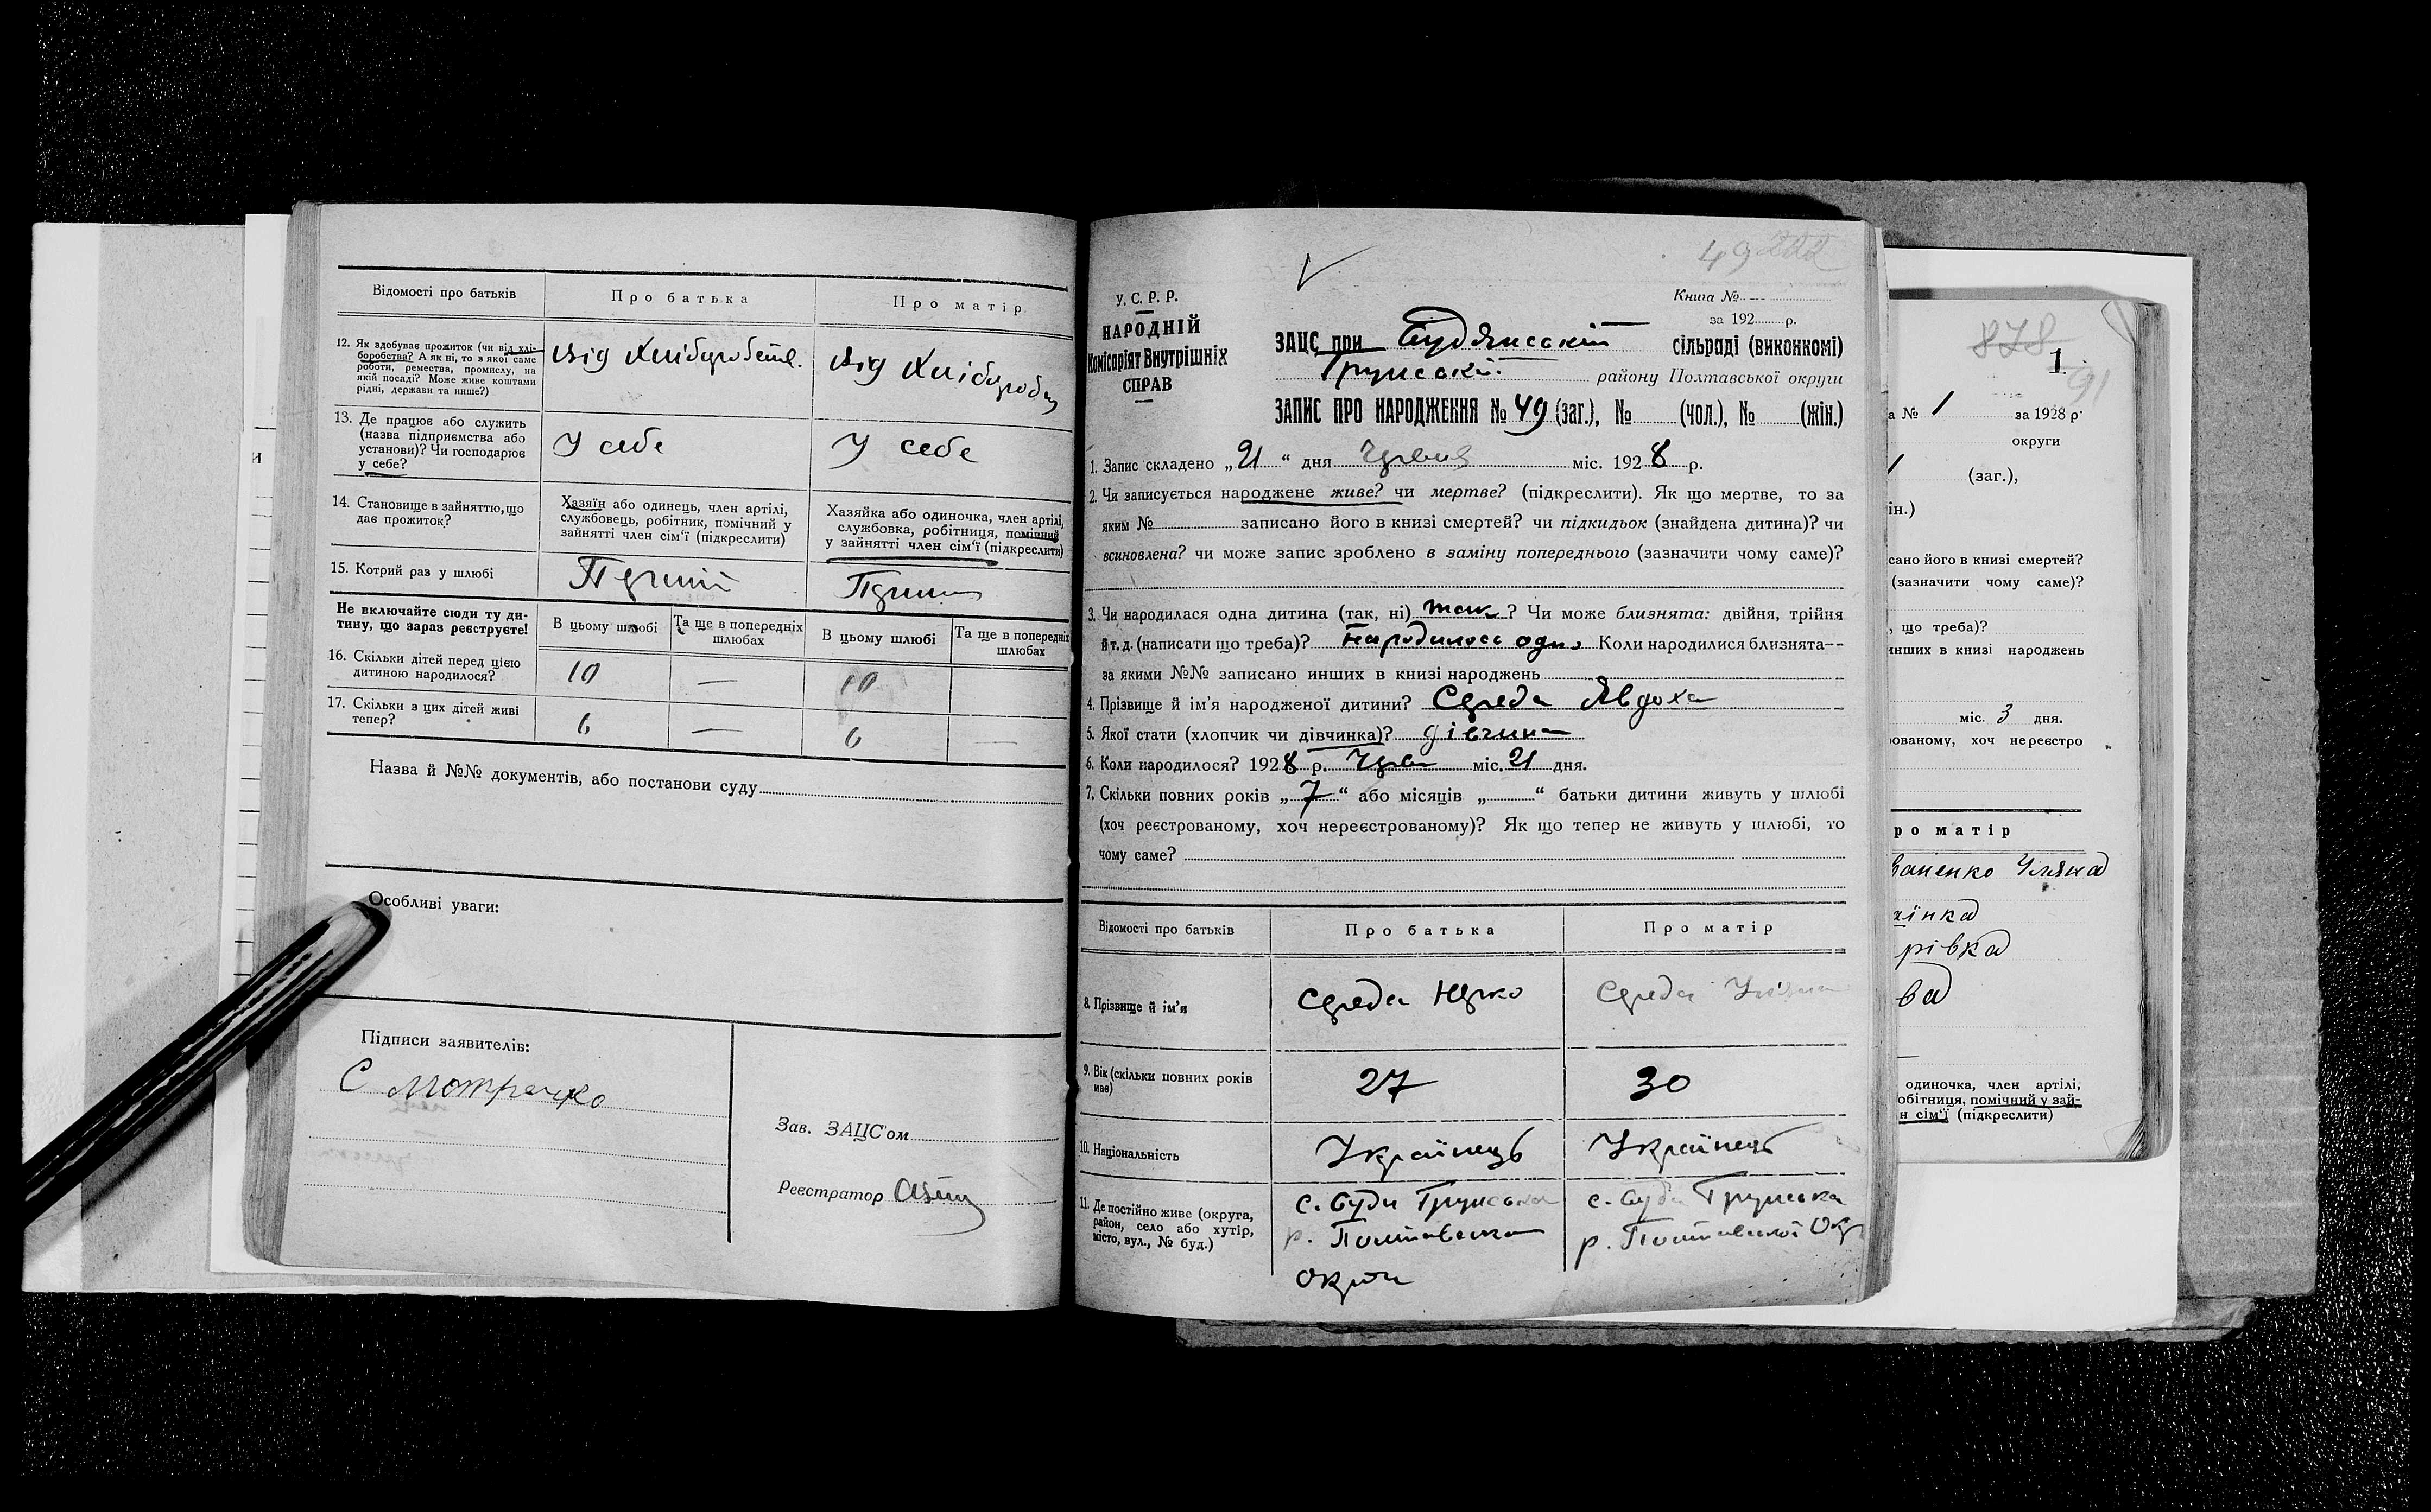 Відомості про батьків
Про батька
Про матір
12. Як здобуває прожиток (чи від хлі-
боробства? А як ні, то з якої саме
роботи, ремества, промислу, на
якій посаді? Може живе коштами
рідні, держави та инше?)
від Хліборобств.
від Хлібороб
13. Де працює або служить
(назва підприємства або
установи)? Чи господарює
у себе?
У себе
У себе
14. Становище в зайняттю, що
дає прожиток?
Хазяїн або одинець, член артілі,
службовець, робітник, помічний у
зайнятті член сім'ї (підкреслити)
Хазяйка або одиночка, член артілі,
службовка, робітниця, помічний
у зайнятті член сім'ї (підкреслити)
15. Котрий раз у шлюбі
Перший
Перши
Не включайте сюди ту ди-
тину, що зараз реєструєте!
В цьому шлюбі
Та ще в попередніх
шлюбах
В цьому шлюбі
Та ще в попередніх
шлюбах
16. Скільки дітей перед цією
дитиною народилося?
10 — 10
17. Скільки з цих дітей живі
тепер?
6 — 6 —
Назва й №№ документів, або постанови суду
Особливі уваги:
Підписи заявителів:
С
Зав. ЗАЦС'ом
Реєстратор
49 222
У. С. Р. Р.
НАРОДНІЙ
Комісаріят Внутрішніх
СПРАВ
Книга №
за 192 р.
ЗАЦС при сільраді (виконкомі)
Грунській району Полтавської округи
ЗАПИС ПРО НАРОДЖЕННЯ № 49 (заг.), № (чол.), № (жін.)
1. Запис складено „21“ дня Червня міс. 1928 р.
2. Чи записується народжене живе? чи мертве? (підкреслити). Як що мертве, то за
яким № записано його в книзі смертей? чи підкидьок (знайдена дитина)? чи
всиновлена? чи може запис зроблено в заміну попереднього (зазначити чому саме)?
3. Чи народилася одна дитина (так, ні) так? Чи може близнята: двійня, трійня
й т. д. (написати що треба)? народилось одно Коли народилися близнята--
за якими №№ записано инших в книзі народжень
4. Прізвище й ім'я народженої дитини? Середа Явдоха
5. Якої стати (хлопчик чи дівчинка)? дівчина
6. Коли народилося? 1928 р. Черв міс. 21 дня.
7. Скільки повних років „7“ або місяців „ “ батьки дитини живуть у шлюбі
(хоч реєстрованому, хоч нереєстрованому)? Як що тепер не живуть у шлюбі, то
чому саме?
Відомості про батьків
Про батька
Про матір
8. Прізвище й ім'я
Середа Юрко
Середа
9. Вік (скільки повних років
має)
27
30
10. Національність
Українець
Українець
11. Де постійно живе (округа,
район, село або хутір,
місто, вул., № буд.)
с. Буди Грунська
р. Полтавська
Округи
с. Буди Грунська
р. Полтавської Окр
878
1
91
а № 1 за 1928 р.
округи
1 (заг.),
ін.)
сано його в книзі смертей?
(зазначити чому саме)?
, що треба)?
инших в книзі народжень
міс. 3 дня.
рованому, хоч нереєстро
ро матір
ваненко Уляна
їнка
рівка
ва
одиночка, член артілі,
обітниця, помічний у зай-
н сім'ї (підкреслити)